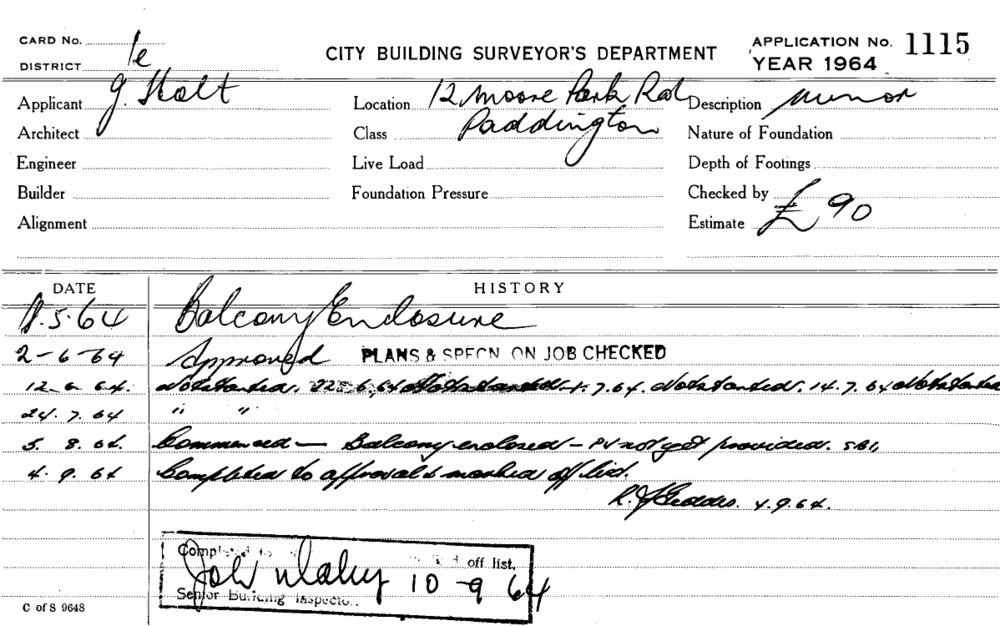 CARD No. 1e
DISTRICT
CITY BUILDING SURVEYOR'S DEPARTMENT
APPLICATION No. 1115
YEAR 1964
Applicant g. Holt
Location 12 Moore Park Rd
Description minor
Architect
Class Paddington
Nature of Foundation
Engineer
Live Load
Depth of Footings
Builder
Foundation Pressure
Checked by
Alignment
Estimate £90
DATE HISTORY
.5.64 Balcony Enclosure
2-6-64 Approved PLANS & SPECN ON JOB CHECKED
12.6.64. Not started. 22.6.64 Not started 1.7.64. Not started. 14.7.64 Not started
24.7.64 " "
5.8.64. Commenced — Balcony enclosed — PV not yet provided.
4.9.64 Completed to approval & marked off list.
4.9.64.
off list.
10-9 64
Senior Building Inspector.
C of S 9648